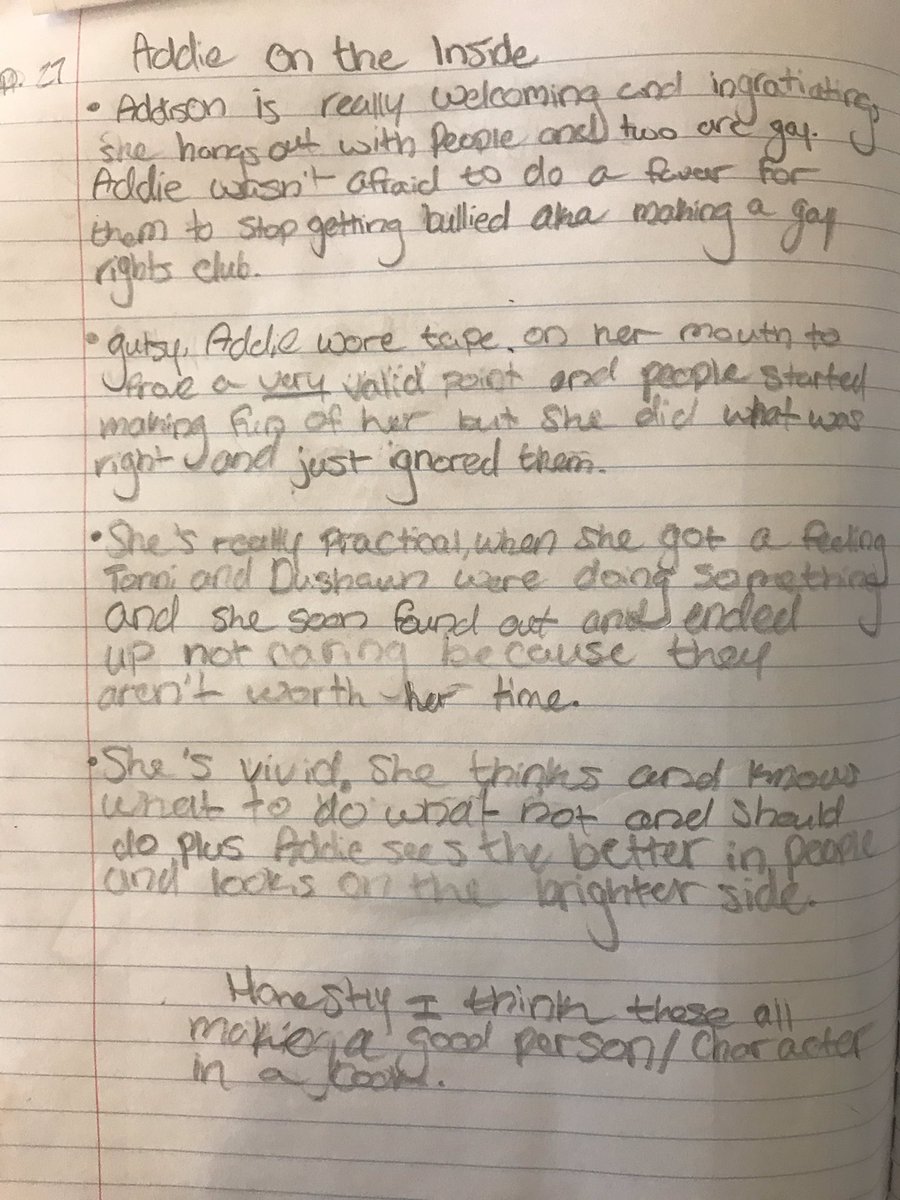 p. 27
Addie on the Inside
• Addison is really welcoming and ingratiating,
she hangs out with people and two are gay.
Addie wasn't afraid to do a fever for
them to stop getting bullied aka making a gay
rights club.
• gutsy, Addie wore tape on her mouth to
a very valid point and people started
making fun of her but she did what was
right and just ignored them.
• She's really practical, when she got a feeling
Tonni and Dushawn were doing something
and she soon found out and ended
up not caring because they
aren't worth her time.
• She's vivid. She thinks and knows
what to do what not and should
do plus Addie sees the better in people
and looks on the brighter side.
Honestly I think these all
make a good person/character
in a book.